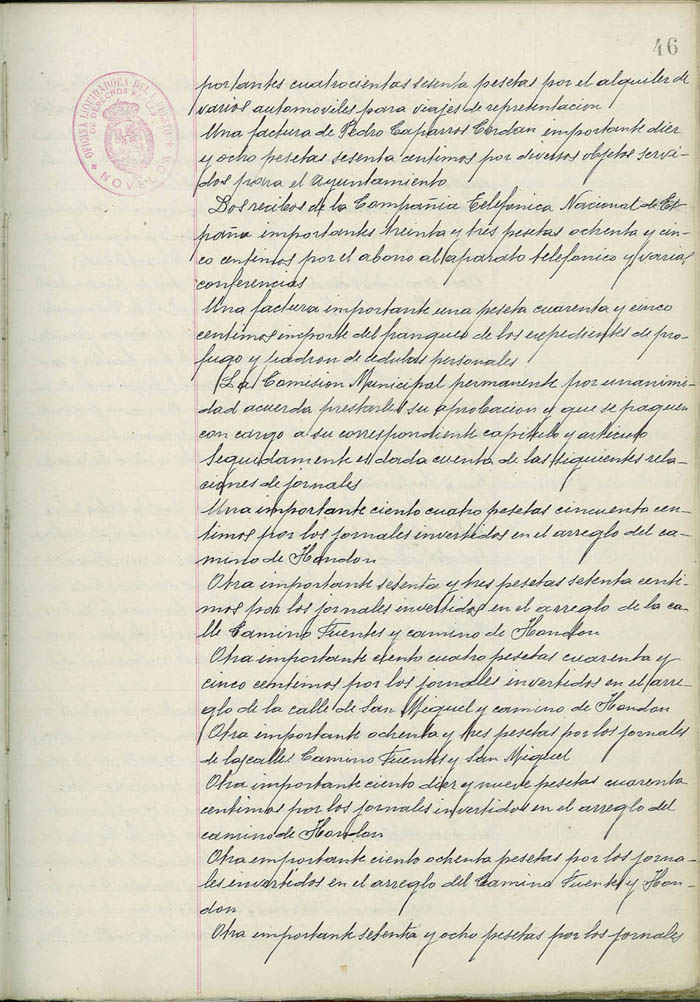 46
OFICINA LIQUIDADORA DEL IMPUESTO
DE DERECHOS REALES
NOVELDA
portantes cuatrocientas sesenta pesetas por el alquiler de
varios automoviles para viajes de representacion
Una factura de Pedro Caparros Cerdan importante diez
y ocho pesetas sesenta centimos por diversos objetos servi-
dos para el Ayuntamiento
Dos recibos de la Compañia Telefonica Nacional de Es-
paña importantes treinta y tres pesetas ochenta y cin-
co centimos por el abono al aparato telefonico y varias
conferencias
Una factura importante una peseta cuarenta y cinco
centimos importe del franqueo de los expedientes de pro-
fugo y padron de cedulas personales
La Comision Municipal permanente por unanimi-
dad acuerda prestarles su aprobacion y que se paguen
con cargo a su correspondiente capitulo y articulo
Seguidamente es dada cuenta de las siguientes rela-
ciones de jornales
Una importante ciento cuatro pesetas cincuenta cen-
timos por los jornales invertidos en el arreglo del ca-
mino de Hondon
Otra importante setenta y tres pesetas setenta centi-
mos por los jornales invertidos en el arreglo de la ca-
lle Camino Fuentes y camino de Hondon
Otra importante ciento cuatro pesetas cuarenta y
cinco centimos por los jornales invertidos en el arre-
glo de la calle de San Miguel y camino de Hondon
Otra importante ochenta y tres pesetas por los jornales
de la calle Camino Fuentes y San Miguel
Otra importante ciento diez y nueve pesetas cuarenta
centimos por los jornales invertidos en el arreglo del
camino de Hondon
Otra importante ciento ochenta pesetas por los jorna-
les invertidos en el arreglo del Camino Fuentes y Hon-
don
Otra importante setenta y ocho pesetas por los jornales